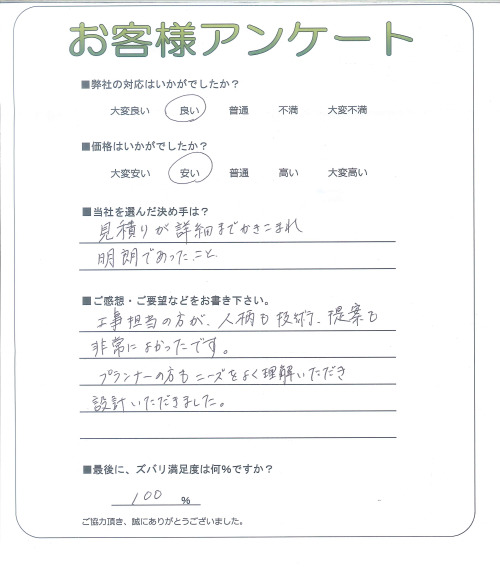 お客様アンケート
■弊社の対応はいかがでしたか？
大変良い 良い 普通 不満 大変不満
■価格はいかがでしたか？
大変安い 安い 普通 高い 大変高い
■当社を選んだ決め手は？
見積りが詳細までかきこまれ
明朗であったこと
■ご感想・ご要望などをお書き下さい。
工事担当の方が、人柄も技術も、提案も
非常によかったです。
プランナーの方もニーズをよく理解いただき
設計いただきました。
■最後に、ズバリ満足度は何％ですか？
100 ％
ご協力頂き、誠にありがとうございました。